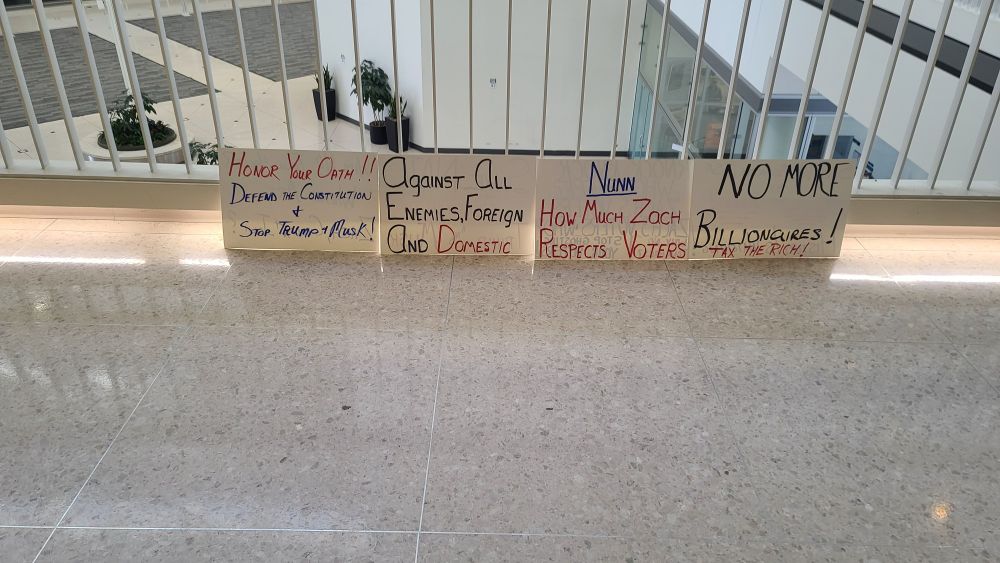 HONOR YOUR OATH !!
DEFEND THE CONSTITUTION
&
STOP TRUMP + MUSK!
AGAINST ALL
ENEMIES, FOREIGN
AND DOMESTIC
NUNN
HOW MUCH ZACH
RESPECTS VOTERS
NO MORE
BILLIONAIRES!
TAX THE RICH!